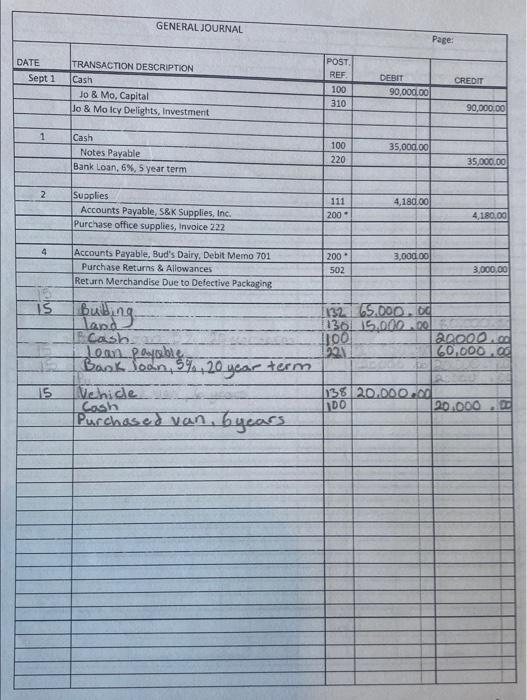 GENERAL JOURNAL
Page:
DATE TRANSACTION DESCRIPTION POST. REF. DEBIT CREDIT
Sept 1 Cash 100 90,000.00
Jo & Mo, Capital 310 90,000.00
Jo & Mo Icy Delights, Investment
1 Cash 100 35,000.00
Notes Payable 220 35,000.00
Bank Loan, 6%, 5 year term
2 Supplies 111 4,180.00
Accounts Payable, S&K Supplies, Inc. 200 * 4,180.00
Purchase office supplies, Invoice 222
4 Accounts Payable, Bud's Dairy, Debit Memo 701 200 * 3,000.00
Purchase Returns & Allowances 502 3,000.00
Return Merchandise Due to Defective Packaging
15 Building 132 65.000.00
land 130 15,000.00
Cash 100 20000.00
loan payable 221 60,000.00
Bank loan, 5%, 20 year term
15 Vehicle 138 20.000.00
Cash 100 20.000.00
Purchased van, 6 years